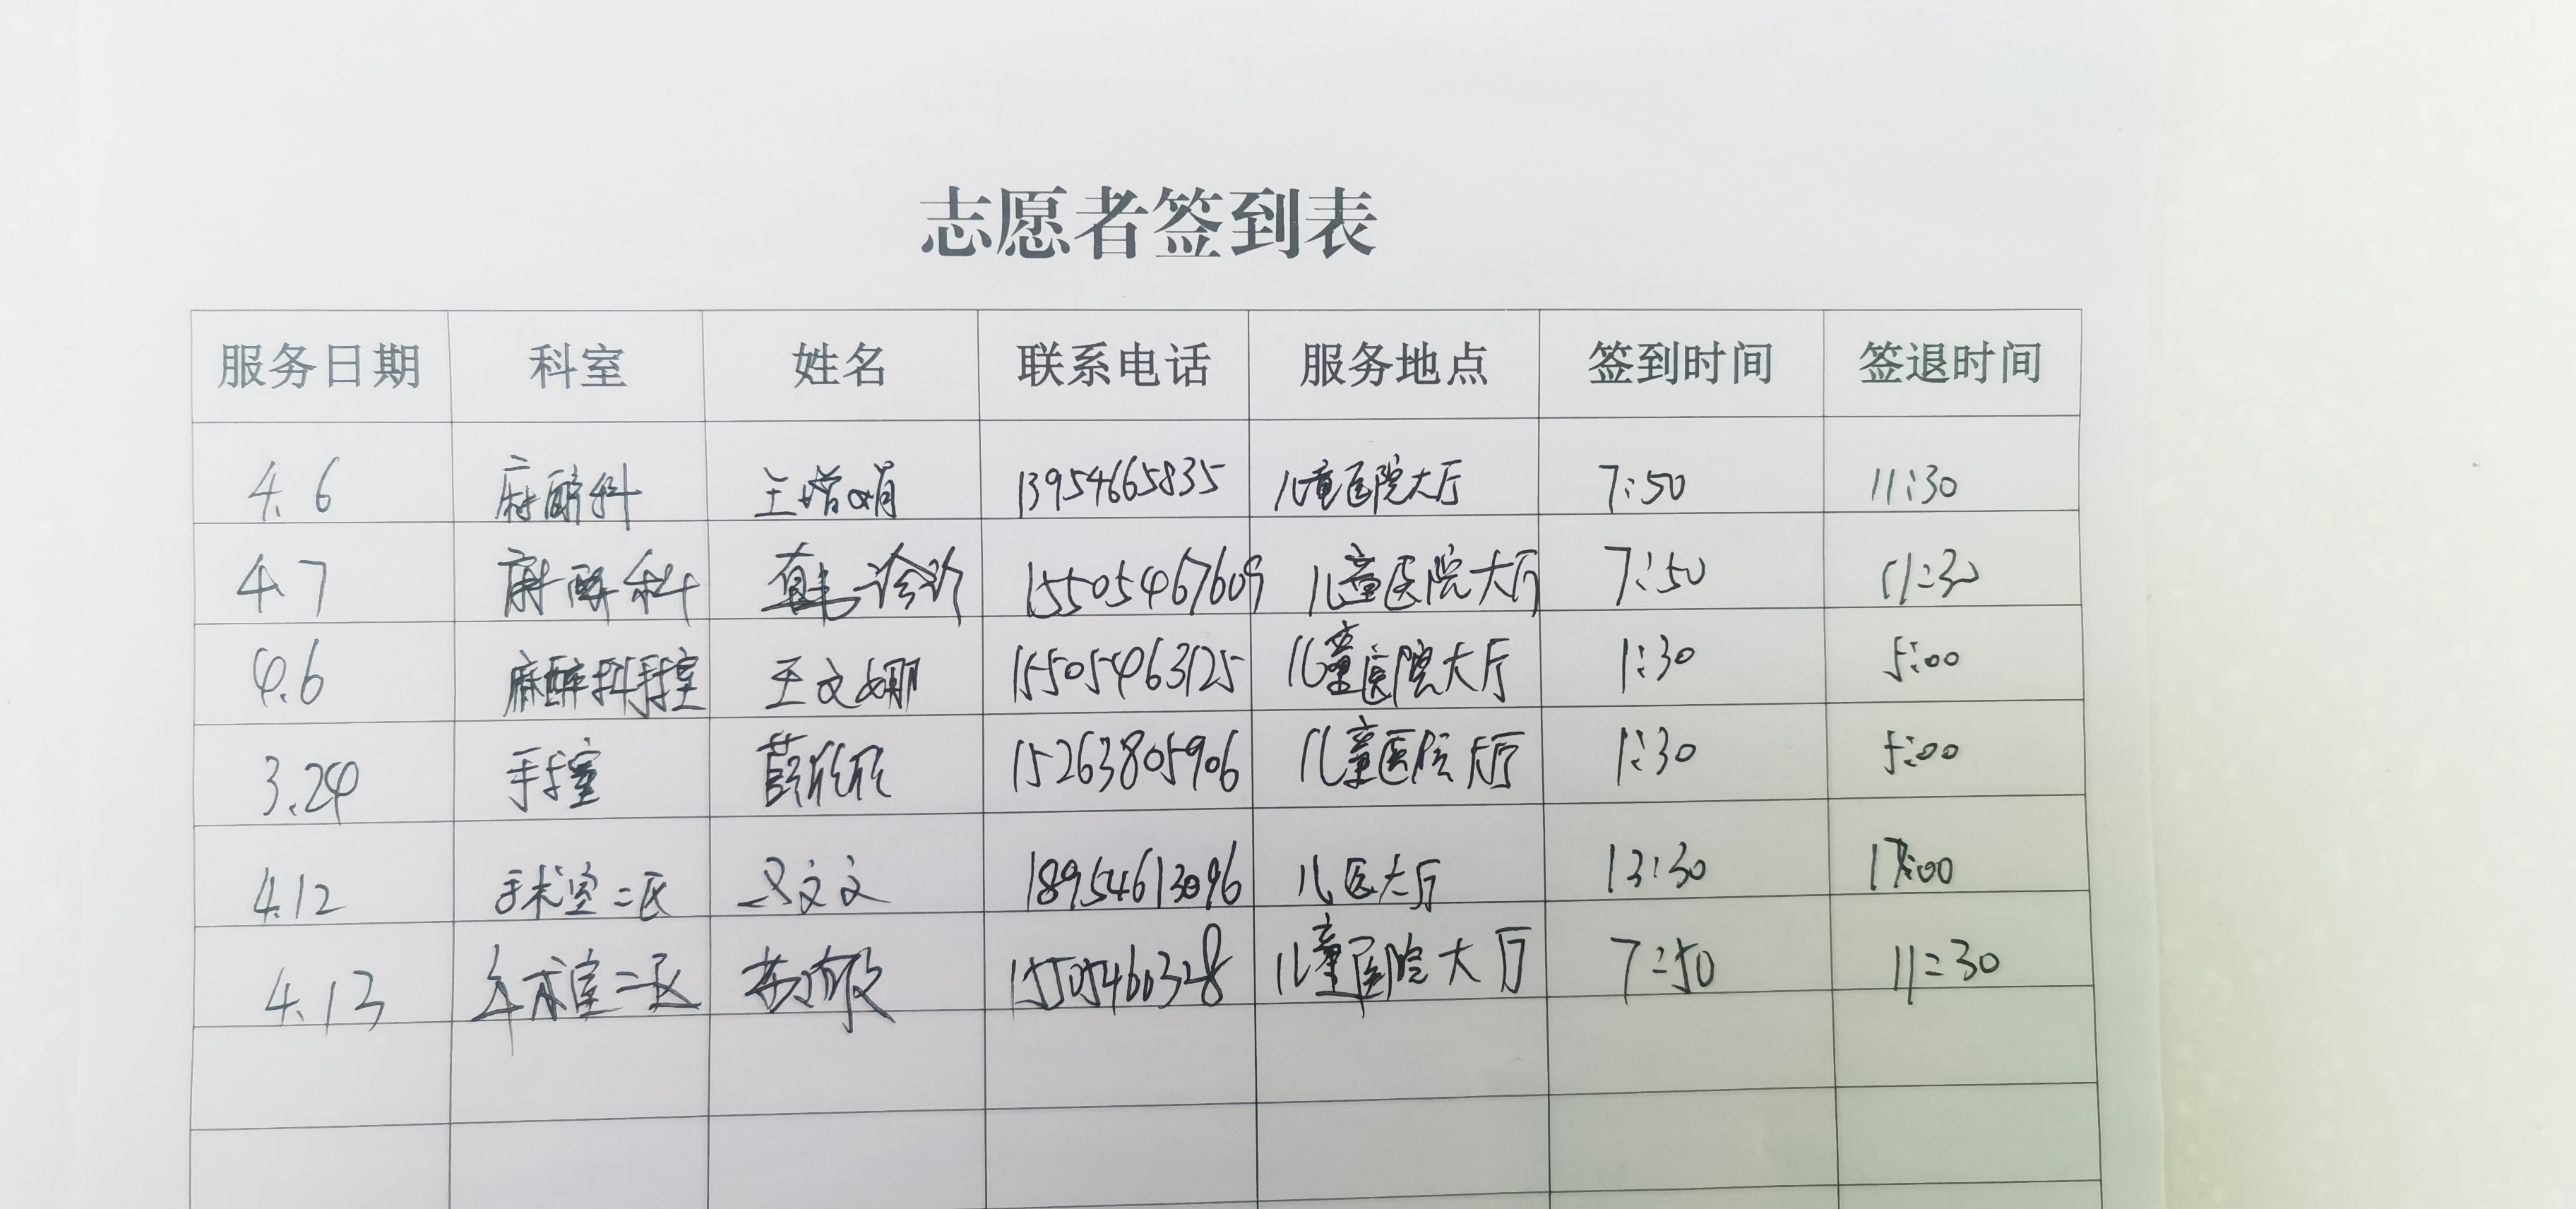 志愿者签到表
服务日期 科室 姓名 联系电话 服务地点 签到时间 签退时间
4.6 麻醉科 王增娟 13954665835 儿童医院大厅 7:50 11:30
4.7 麻醉科 15505467609 儿童医院大厅 7:50 11:30
4.6 麻醉科手术室 王文娜 15505463125 儿童医院大厅 1:30 5:00
3.24 手术室 薛欣欣 15263805906 儿童医院大厅 1:30 5:00
4.12 手术室二区 文文 18954613096 儿医大厅 13:30 17:00
4.13 手术室二区 儿童医院大厅 7:50 11:30